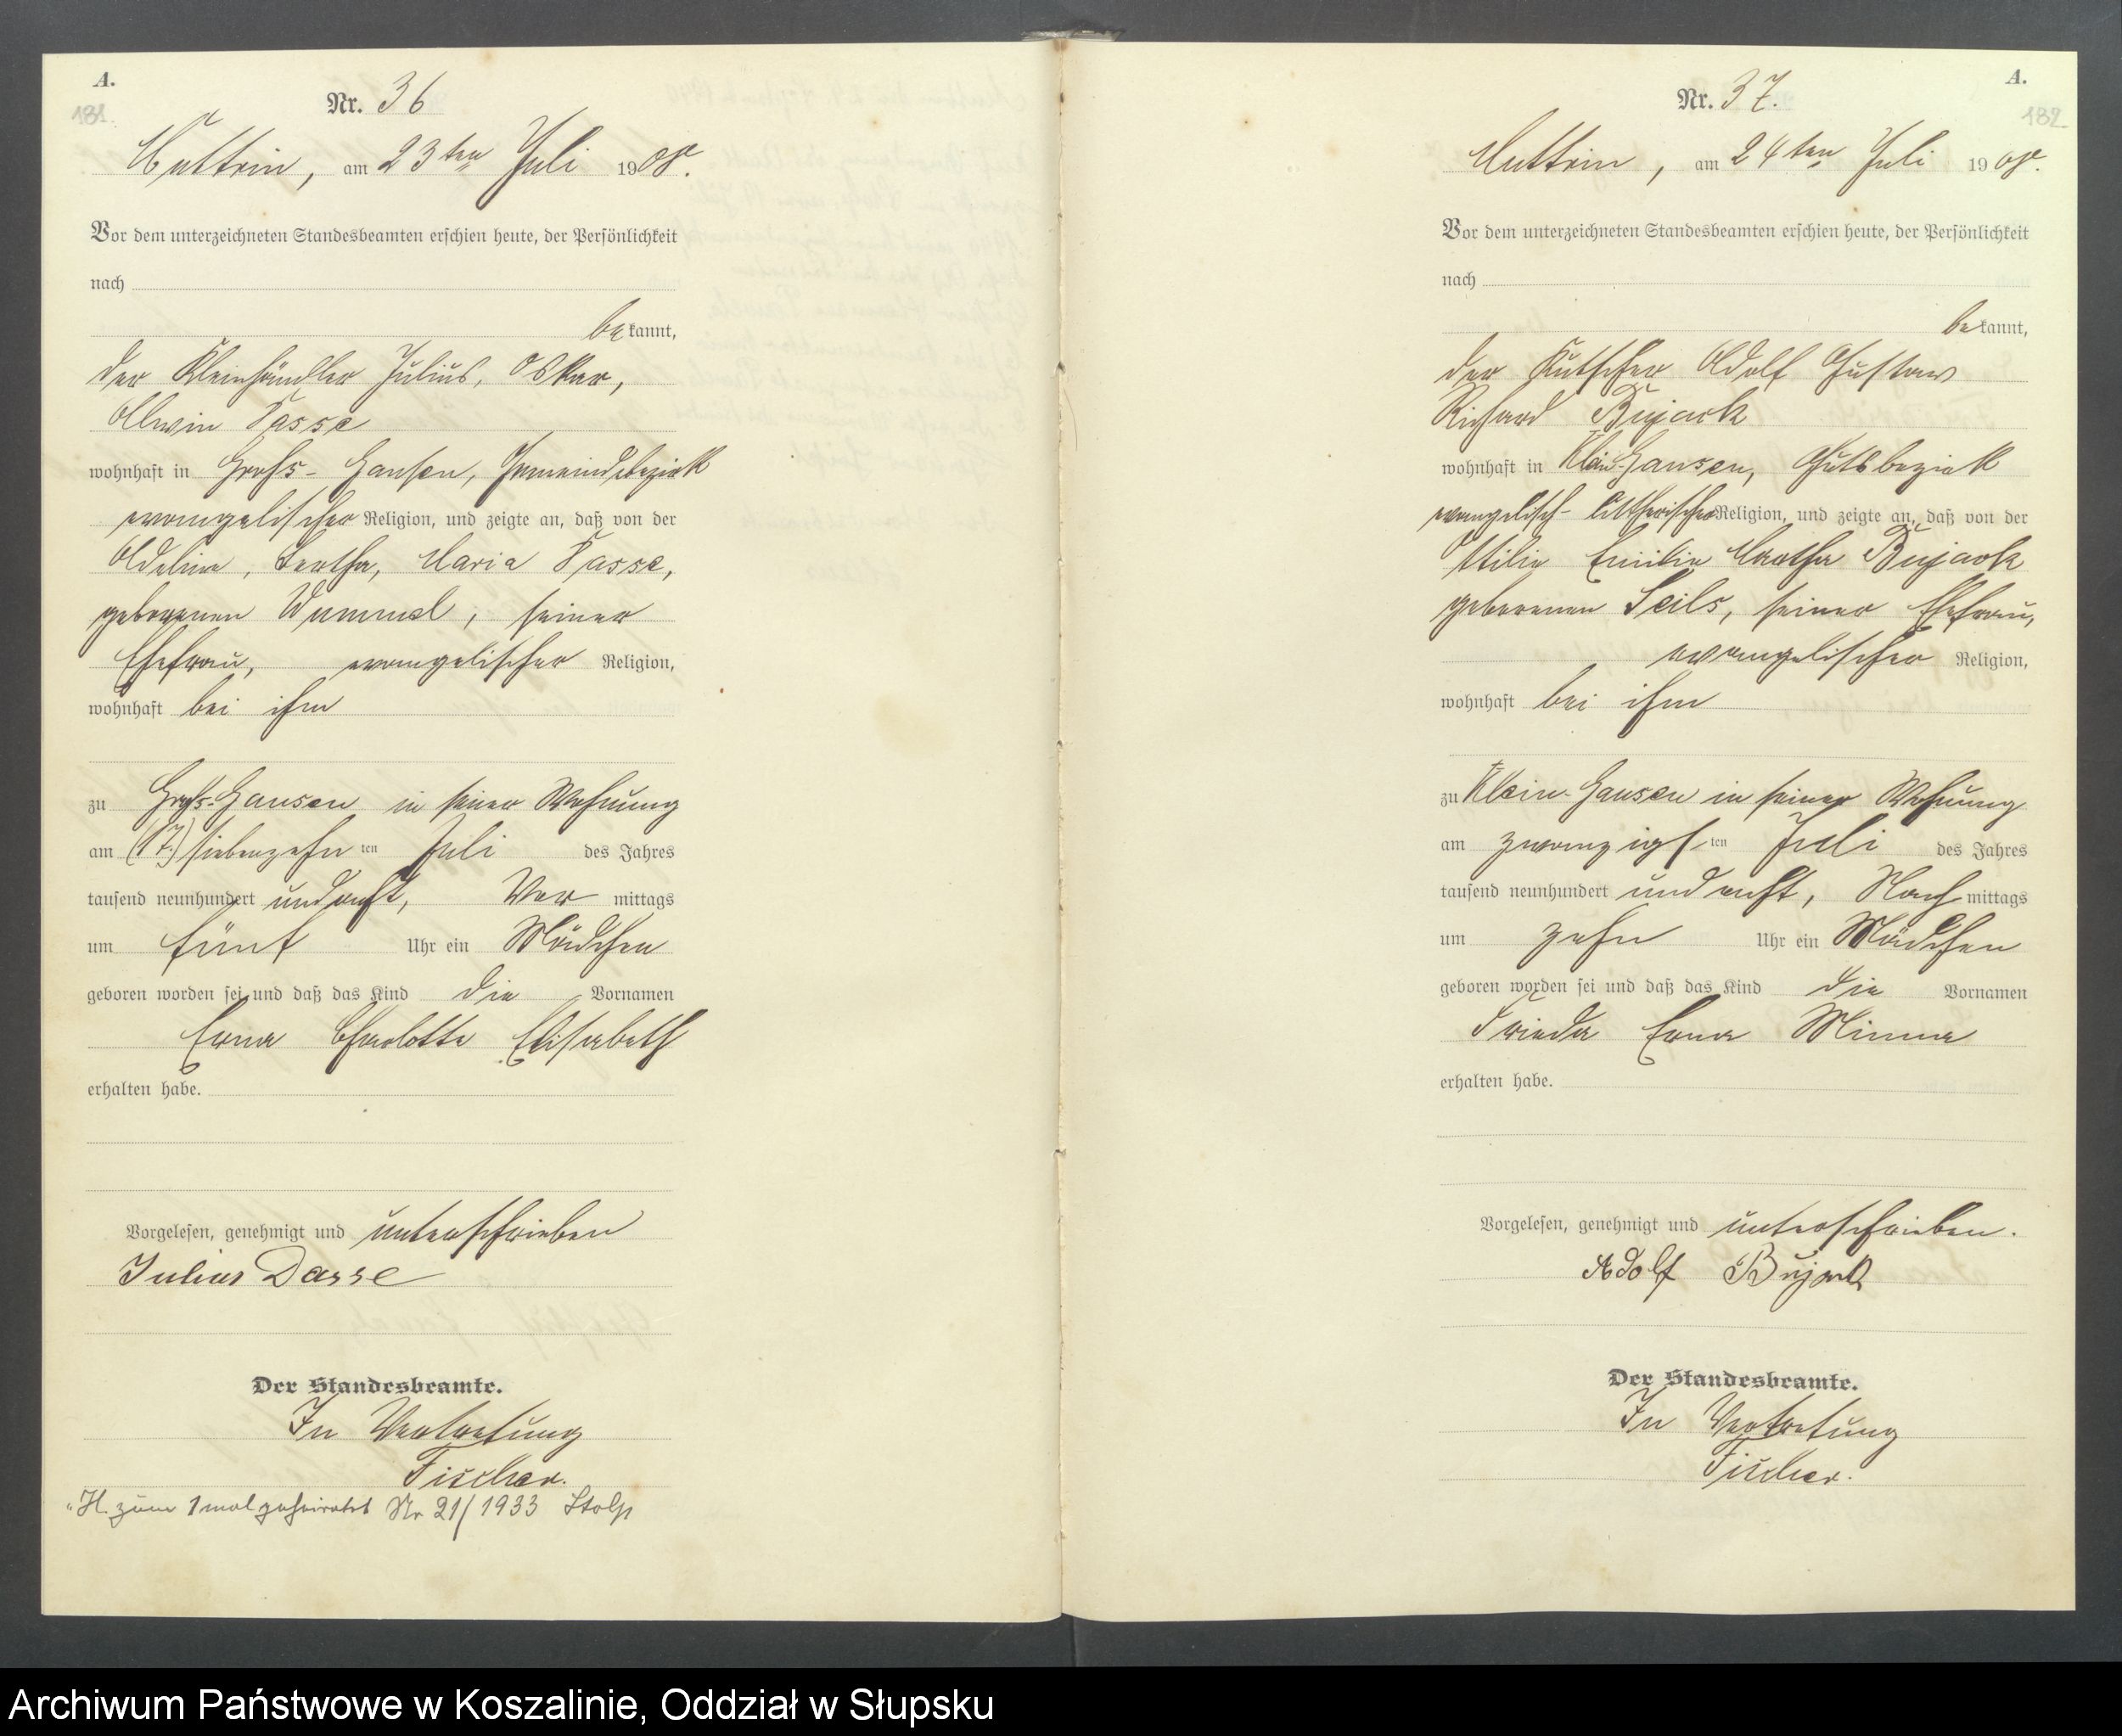 A.
181.
Nr. 36
Muttrin, am 23ten Juli 1908.
Vor dem unterzeichneten Standesbeamten erschien heute, der Persönlichkeit
nach
bekannt,
der Kleinhändler Julius, Oskar,
Allwin Dasse
wohnhaft in Groß-Gansen, Gemeindebezirk
evangelischer Religion, und zeigte an, daß von der
Adeline, Bertha, Maria Dasse,
geborenen Wummel, seiner
Ehefrau, evangelischer Religion,
wohnhaft bei ihm
zu Groß-Gansen in seiner Wohnung
am (17.) siebenzehnten Juli des Jahres
tausend neunhundert undacht, Vormittags
um fünf Uhr ein Mädchen
geboren worden sei und daß das Kind die Vornamen
Erna Charlotte Elisabeth
erhalten habe.
Vorgelesen, genehmigt und unterschrieben
Julius Dasse
Der Standesbeamte.
In Vertretung
Fischer.
zum 1 mal geheiratet Nr 21/1933 Stolp
A.
182
Nr. 37.
Muttrin, am 24ten Juli 1908.
Vor dem unterzeichneten Standesbeamten erschien heute, der Persönlichkeit
nach
bekannt,
der Kutscher Adolf Gustaw
Richard Bujack
wohnhaft in Klein-Gansen, Gutsbezirk
evangelisch-luttherischer Religion, und zeigte an, daß von der
Ottilie Emilie Martha Bujack
geborenen Seils, seiner Ehefrau,
evangelischer Religion,
wohnhaft bei ihm
zu Klein-Gansen in seiner Wohnung
am zwanzigsten Juli des Jahres
tausend neunhundert undacht, Nachmittags
um zehn Uhr ein Mädchen
geboren worden sei und daß das Kind die Vornamen
Frieda Erna Minna
erhalten habe.
Vorgelesen, genehmigt und unterschrieben.
Adolf Bujack
Der Standesbeamte.
In Vertretung
Fischer.
Archiwum Państwowe w Koszalinie, Oddział w Słupsku